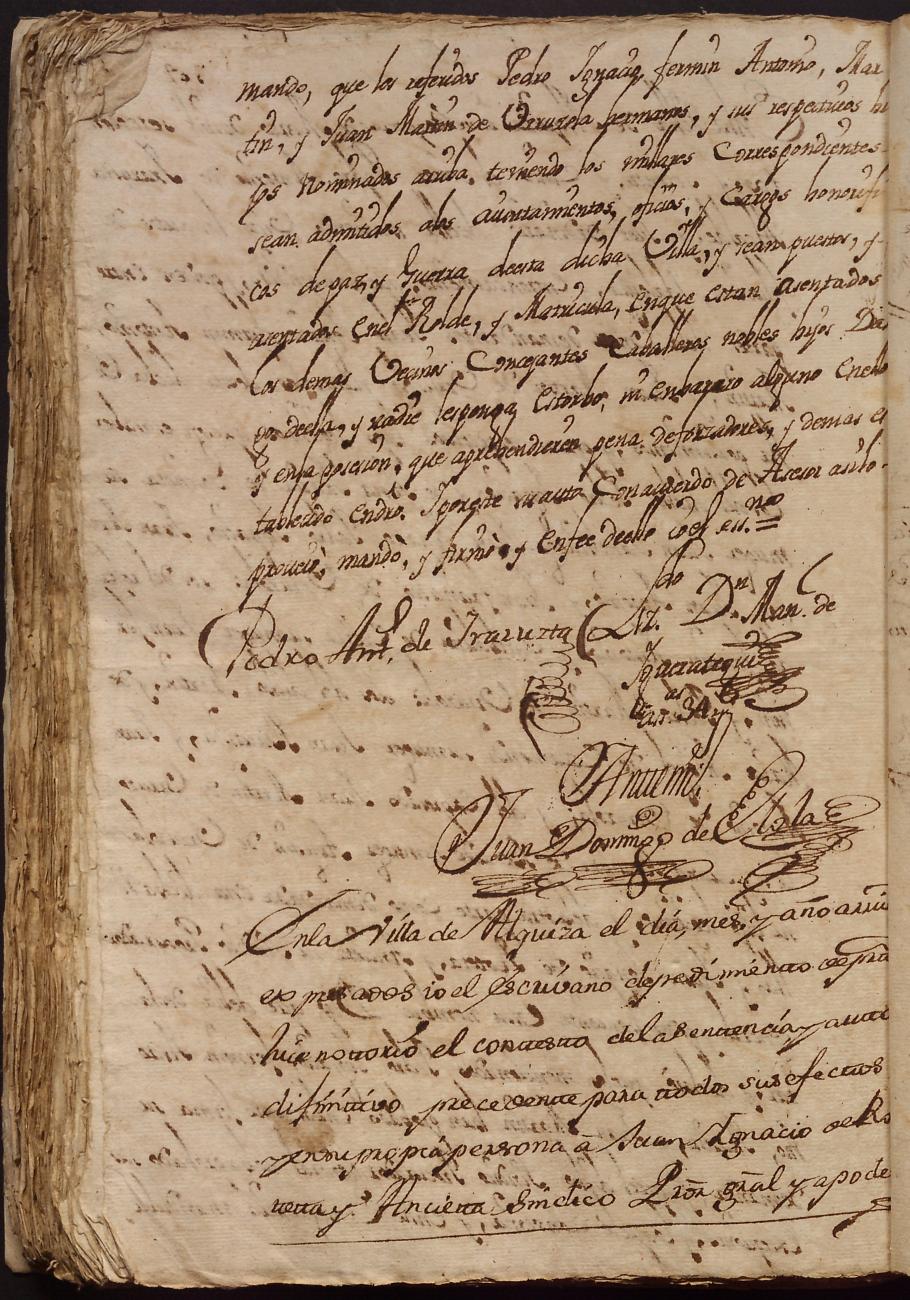 mando, que los referidos Pedro Ignacio, fermin Antonio, Mar
tin, y Juan Martin de Urruzola hermanos, y sus respectivos hi
jos Nominados arriva, teniendo los millares Correspondientes
sean admitidos alos aiuntamientos, oficios, y Cargos honorifi
cos de paz, y Guerra deesta dicha Villa, y sean puestos, y
asentados Enel Rolde, y Matricula, Enque estan Asentados
los demas Vecinos Concejantes Caballeros nobles hijos Dal
go della, y nadie les ponga Estorbo, ni Enbarazo alguno Enello
y enla posesion, que aprehendieren pena deforzadores, y demas es
tableado Endro. Y por este su auto Con acuerdo de Asesor asilo
proveiò, mandò, y firmò, y Enfee dello io el ess.no =
Pedro Ant. de Irazuzta Liz.do Dn Man.l de
Antemi
Juan Domingo de Elola
Enla Villa de Alquiza el dia, mes, y año arri
expresados io el Escribano depedimiento departe
hice notorio el contexto dela Sentencia y auto
difinitivo precedente para todos sus efectos
y en su propia persona à Juan Ignacio de Ro
teta y Ancieta Sindico Pror gral y apode